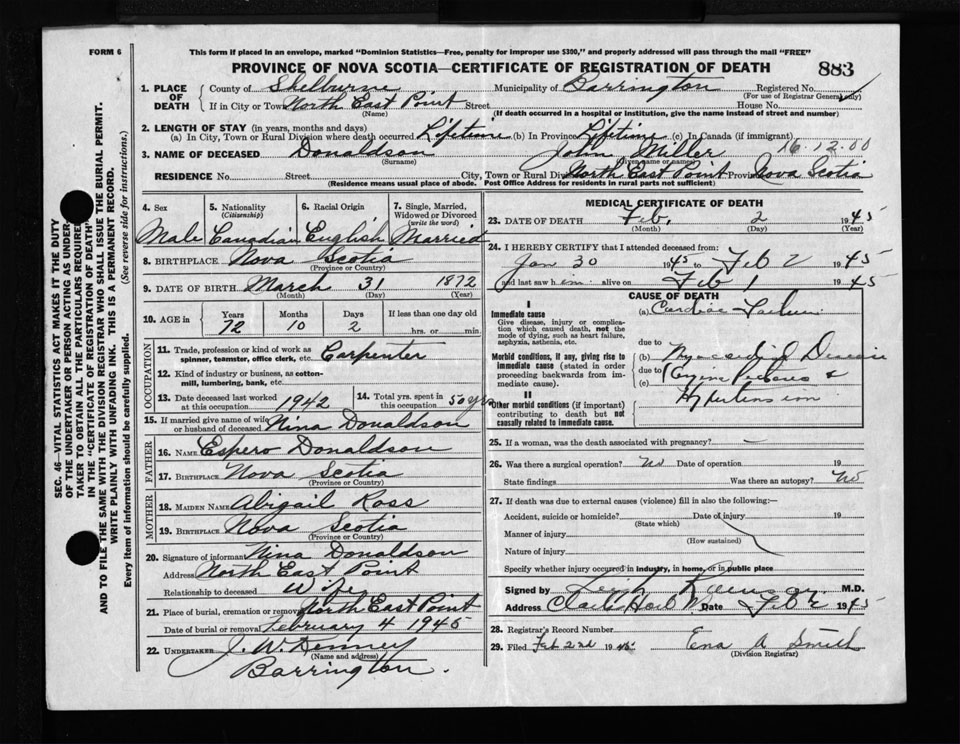 FORM 6
This form if placed in an envelope, marked "Dominion Statistics—Free, penalty for improper use $300," and properly addressed will pass through the mail "FREE"
PROVINCE OF NOVA SCOTIA—CERTIFICATE OF REGISTRATION OF DEATH 883
1. PLACE OF DEATH
County of Shelburne Municipality of Barrington Registered No.
(For use of Registrar General only)
If in City or Town North East Point Street House No.
(Name) (If death occurred in a hospital or institution, give the name instead of street and number)
2. LENGTH OF STAY (in years, months and days)
(a) In City, Town or Rural Division where death occurred Lifetime (b) In Province Lifetime (c) In Canada (if immigrant)
3. NAME OF DECEASED Donaldson John Miller 16.12.00
(Surname) (Given name or names)
RESIDENCE No. Street City, Town or Rural Div North East Point Prov Nova Scotia
(Residence means usual place of abode. Post Office Address for residents in rural parts not sufficient)
4. Sex
Male
5. Nationality
(Citizenship)
Canadian
6. Racial Origin
English
7. Single, Married, Widowed or Divorced
(write the word)
Married
8. BIRTHPLACE Nova Scotia
(Province or Country)
9. DATE OF BIRTH March 31 1872
(Month) (Day) (Year)
10. AGE in
Years Months Days If less than one day old
72 10 2 hrs. or min.
OCCUPATION
11. Trade, profession or kind of work as spinner, teamster, office clerk, etc. Carpenter
12. Kind of industry or business, as cotton-mill, lumbering, bank, etc.
13. Date deceased last worked at this occupation 1942
14. Total yrs. spent in this occupation 50 yrs
15. If married give name of wife or husband of deceased Nina Donaldson
FATHER
16. NAME Espero Donaldson
17. BIRTHPLACE Nova Scotia
(Province or Country)
MOTHER
18. MAIDEN NAME Abigail Ross
19. BIRTHPLACE Nova Scotia
(Province or Country)
20. Signature of informant Nina Donaldson
Address North East Point
Relationship to deceased Wife
21. Place of burial, cremation or removal North East Point
Date of burial or removal February 4 1945
22. UNDERTAKER J. W. Denney
(Name and address)
Barrington.
MEDICAL CERTIFICATE OF DEATH
23. DATE OF DEATH Feb. 2 1945
(Month) (Day) (Year)
24. I HEREBY CERTIFY that I attended deceased from:
Jan 30 1945 to Feb 2 1945
and last saw h im alive on Feb 1 1945
I
Immediate cause
Give disease, injury or complication which caused death, not the mode of dying, such as heart failure, asphyxia, asthenia, etc.
Morbid conditions, if any, giving rise to immediate cause (stated in order proceeding backwards from immediate cause).
II
Other morbid conditions (if important) contributing to death but not causally related to immediate cause.
CAUSE OF DEATH
(a) Cardiac Failure
due to
(b) Myocardial Disease
due to
(c) Angina Pectoris &
Hypertension
25. If a woman, was the death associated with pregnancy? —
26. Was there a surgical operation? No Date of operation 19
State findings Was there an autopsy? No
27. If death was due to external causes (violence) fill in also the following:—
Accident, suicide or homicide? Date of injury 19
(State which)
Manner of injury
(How sustained)
Nature of injury
Specify whether injury occurred in industry, in home, or in public place
Signed by M.D.
Address Date Feb 2 1945
28. Registrar's Record Number
29. Filed Feb 2nd 1945. Ena A Smith
(Division Registrar)
SEC. 46—VITAL STATISTICS ACT MAKES IT THE DUTY
OF THE UNDERTAKER OR PERSON ACTING AS UNDER-
TAKER TO OBTAIN ALL THE PARTICULARS REQUIRED
IN THE "CERTIFICATE OF REGISTRATION OF DEATH"
AND TO FILE THE SAME WITH THE DIVISION REGISTRAR WHO SHALL ISSUE THE BURIAL PERMIT.
WRITE PLAINLY WITH UNFADING INK. THIS IS A PERMANENT RECORD.
Every item of information should be carefully supplied. (See reverse side for instructions.)